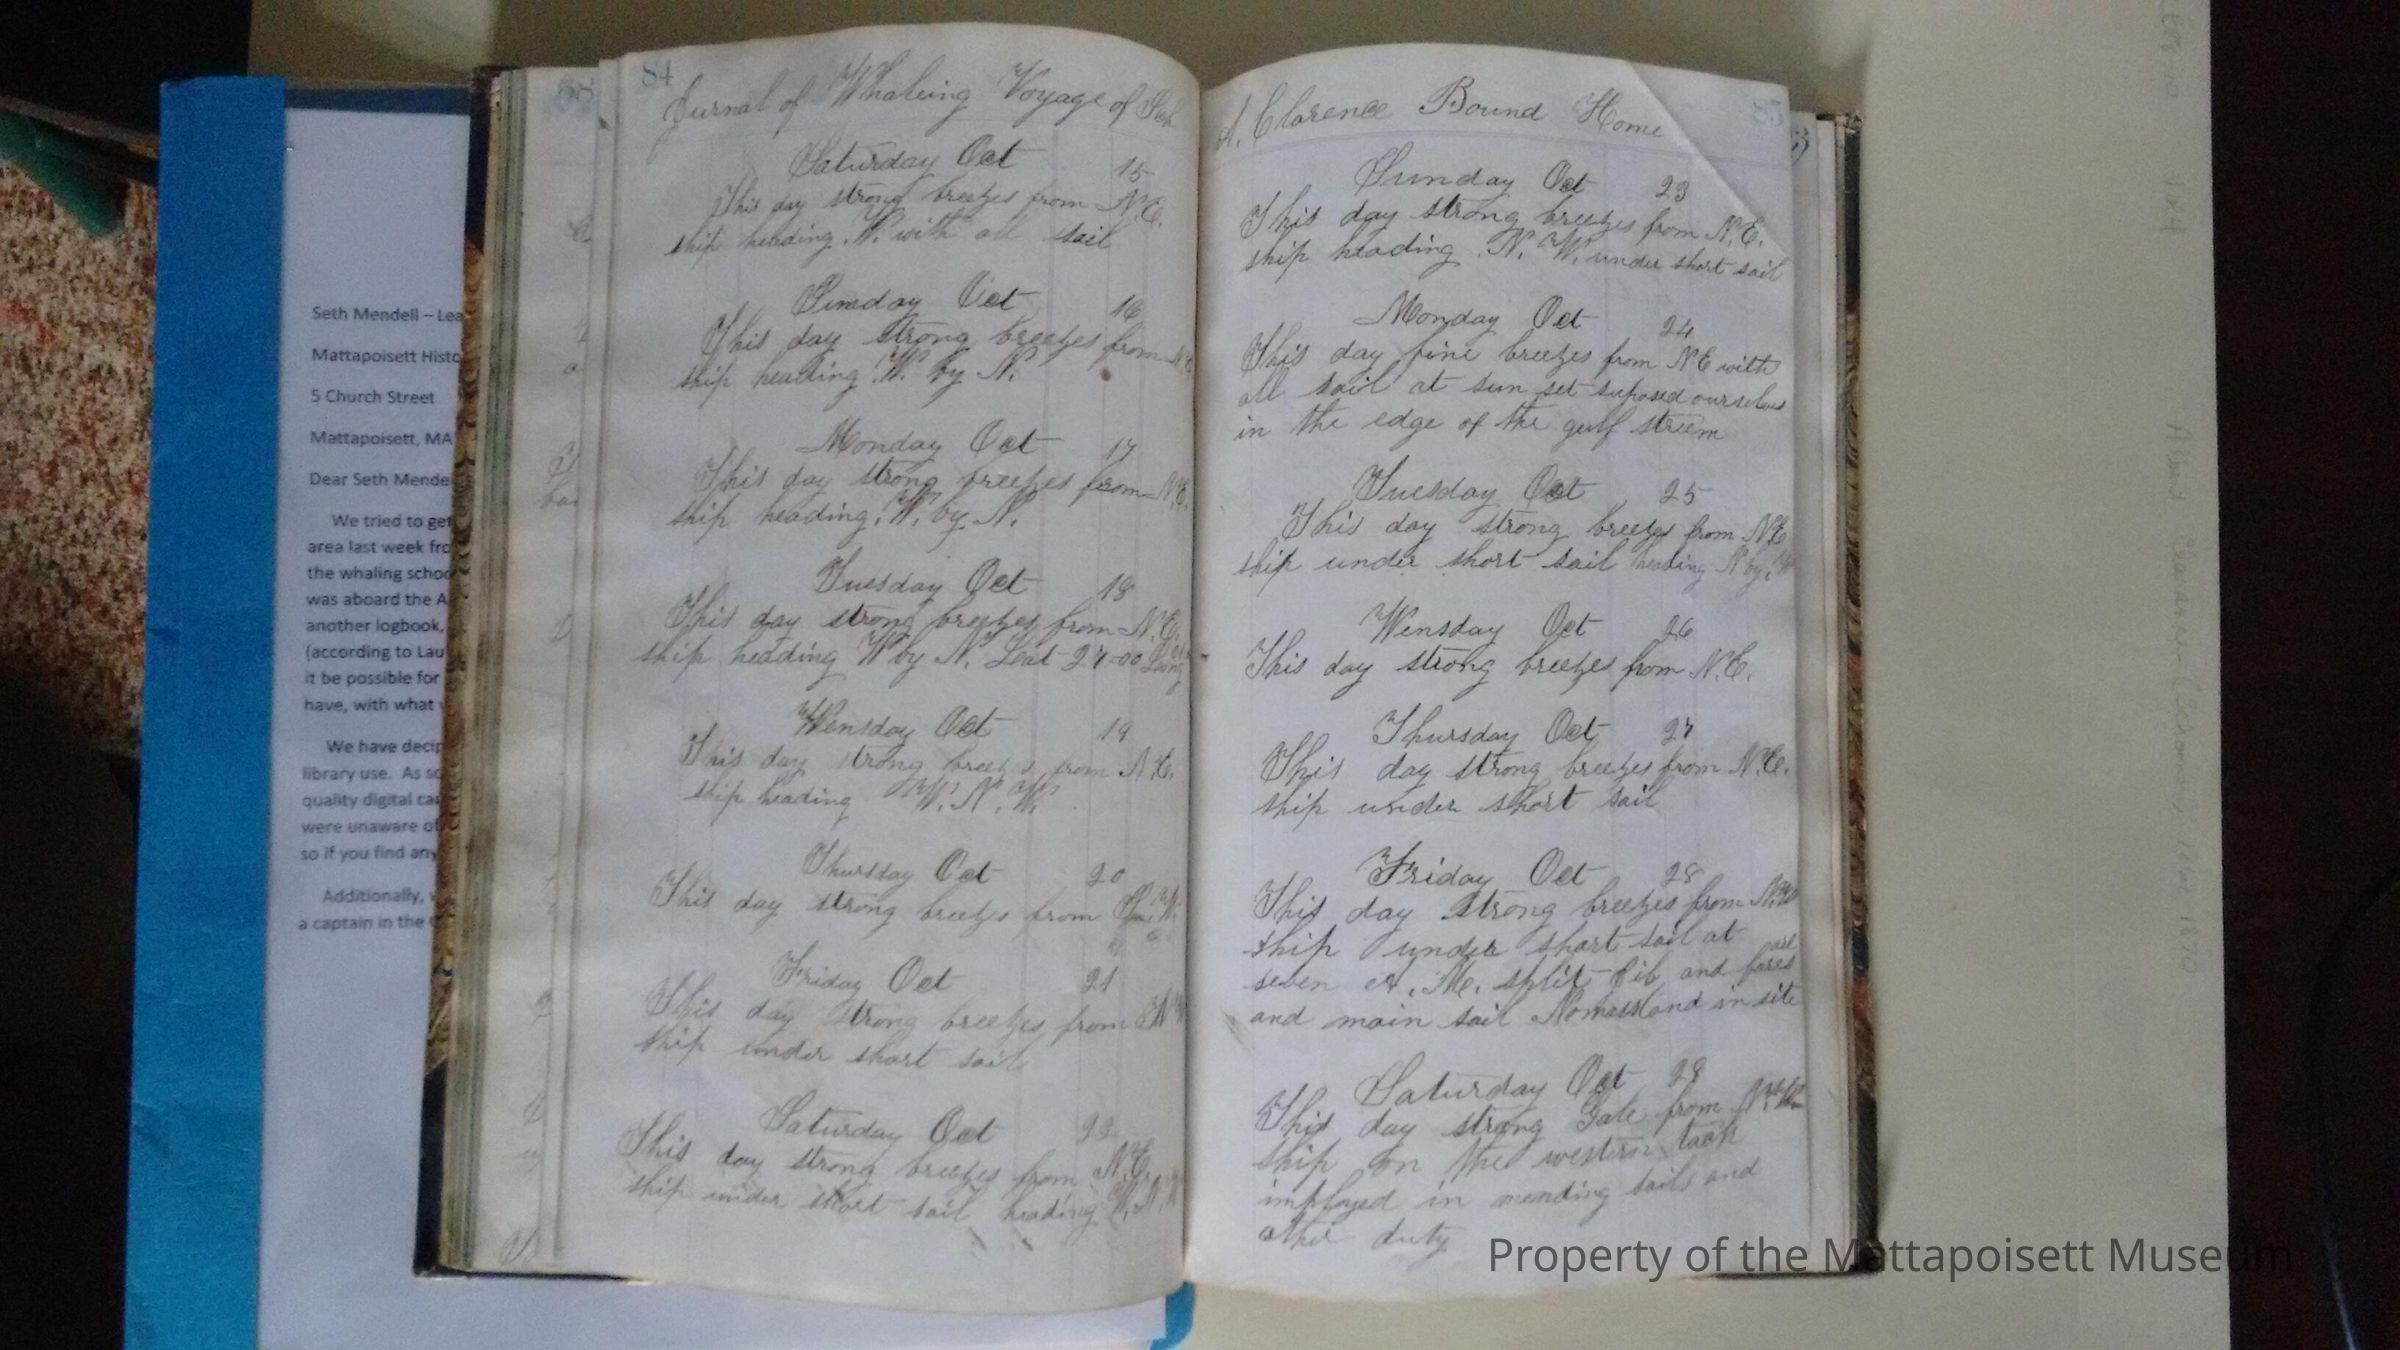 84
Jurnal of Whaleing Voyage of Sch
Saturday Oct 15
This day strong breezes from N.E.
ship heading N. with all sail
Sunday Oct 16
This day strong breezes from N.E.
ship heading W. by N.
Monday Oct 17
This day strong breezes from N.E.
ship heading W. by N.
Tuesday Oct 18
This day strong breezes from N.E.
ship heading W by N. Leat 27-00 Long
Wensday Oct 19
This day strong breezes from N.E.
ship heading W. N. W.
Thursday Oct 20
This day strong breezes from
Friday Oct 21
This day strong breezes from
ship under short sail
Saturday Oct 22
This day strong breezes from N.E.
ship under short sail heading W. N. W
85
A. Clarence Bound Home
Sunday Oct 23
This day strong breezes from N.E.
ship heading N. W. under short sail
Monday Oct 24
This day fine breezes from N E with
all sail at sun set suposed ourselves
in the edge of the gulf streem
Tuesday Oct 25
This day strong breezes from N.E
ship under short sail heading N by W
Wensday Oct 26
This day strong breezes from N.E.
Thursday Oct 27
This day strong breezes from N.E.
ship under short sail
Friday Oct 28
This day strong breezes from N.W
ship under short sail at
seven A. M. split jib and fore sail
and main sail Nomassland in site
Saturday Oct 29
This day strong Gale from N.W.
ship on the western tack
imployed in mending sails and
other duty
Seth Mendell – Lea
Mattapoisett Histo
5 Church Street
Mattapoisett, MA
Dear Seth Mende
We tried to get
area last week fro
the whaling schoo
was aboard the A
another logbook,
(according to Lau
it be possible for
have, with what
We have decip
library use. As so
quality digital ca
were unaware of
so if you find any
Additionally,
a captain in the
Property of the Mattapoisett Museum